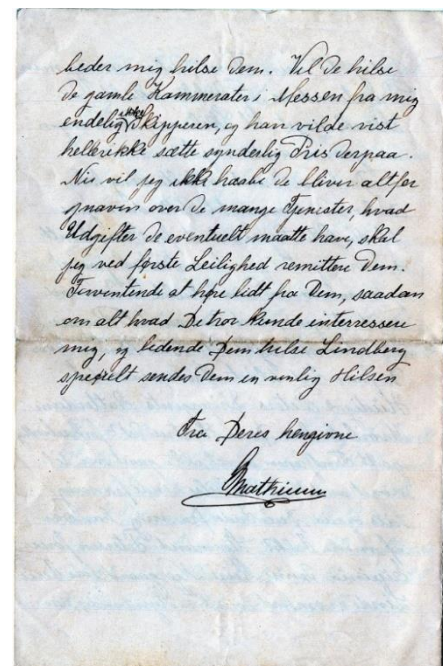 beder mig hilse Dem. Vil De hilse
de gamle Kammerater i Messen fra mig
endelig ikke Skipperen, og han vilde vist
hellerikke sætte synderlig Pris derpaa.
Nu vil jeg ikke haabe De bliver altfor
gnaven over de mange Tjenester, hvad
Udgifter De eventuelt maatte have, skal
jeg ved første Leilighed remittere Dem.
Forventende at høre lidt fra Dem, saadan
om alt hvad De tror kunde interressere
mig, og bedende Dem hilse Lindberg
specielt sendes Dem en venlig Hilsen
Fra Deres hengivne